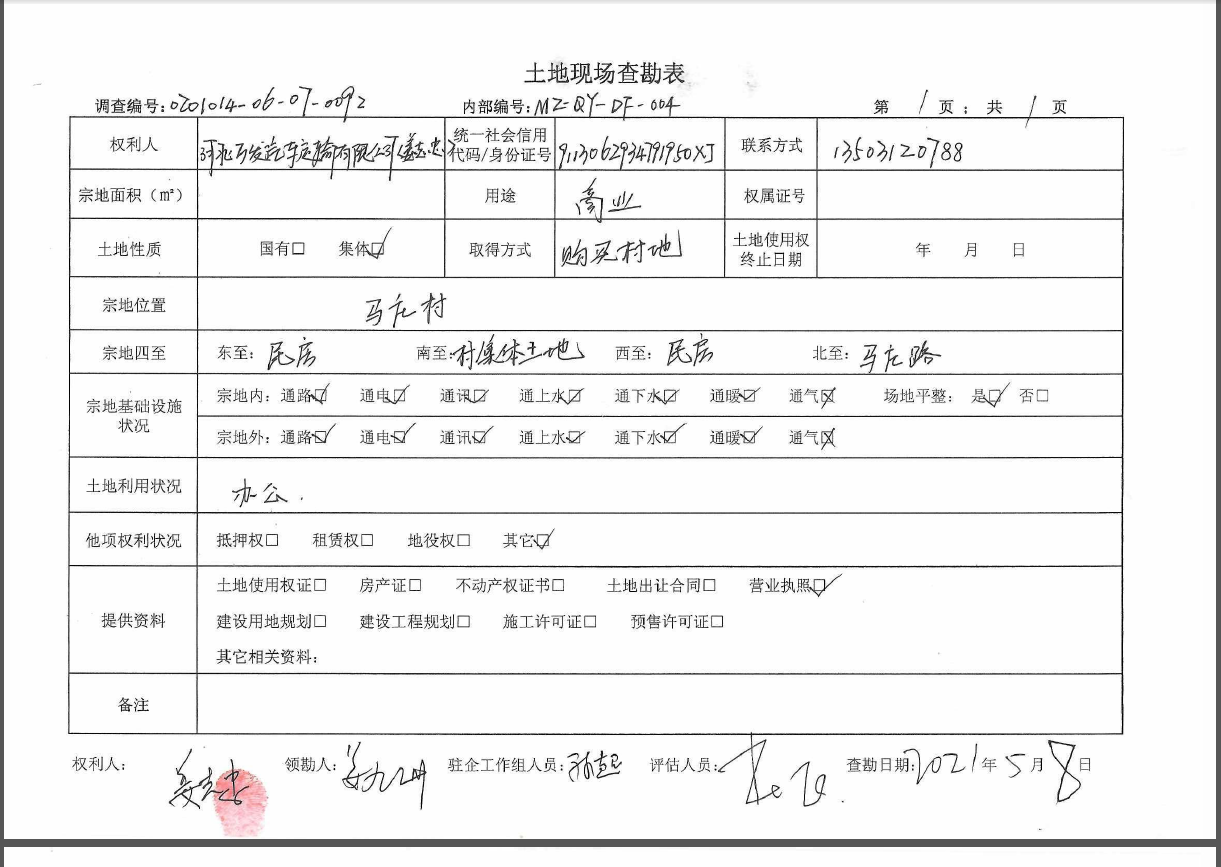 土地现场查勘表
调查编号:0201014-06-07-0092 内部编号:MZ-QY-DF-004 第 1 页;共 1 页
权利人 河北万发汽车运输有限公司(姜志忠) 统一社会信用代码/身份证号 联系方式 13503120788
宗地面积(㎡) 用途 商业 权属证号
土地性质 国有□ 集体☑ 取得方式 购买村地 土地使用权终止日期 年 月 日
宗地位置 马庄村
宗地四至 东至:民房 南至:村集体土地 西至:民房 北至:马庄路
宗地基础设施状况
宗地内:通路☑ 通电☑ 通讯☑ 通上水☑ 通下水☑ 通暖☑ 通气☒ 场地平整:是☑ 否□
宗地外:通路☑ 通电☑ 通讯☑ 通上水☑ 通下水☑ 通暖☑ 通气☒
土地利用状况 办公.
他项权利状况 抵押权□ 租赁权□ 地役权□ 其它☑
提供资料
土地使用权证□ 房产证□ 不动产权证书□ 土地出让合同□ 营业执照☑
建设用地规划□ 建设工程规划□ 施工许可证□ 预售许可证□
其它相关资料:
备注
权利人:姜志忠 领勘人: 驻企工作组人员: 评估人员: 查勘日期:2021年5月8日